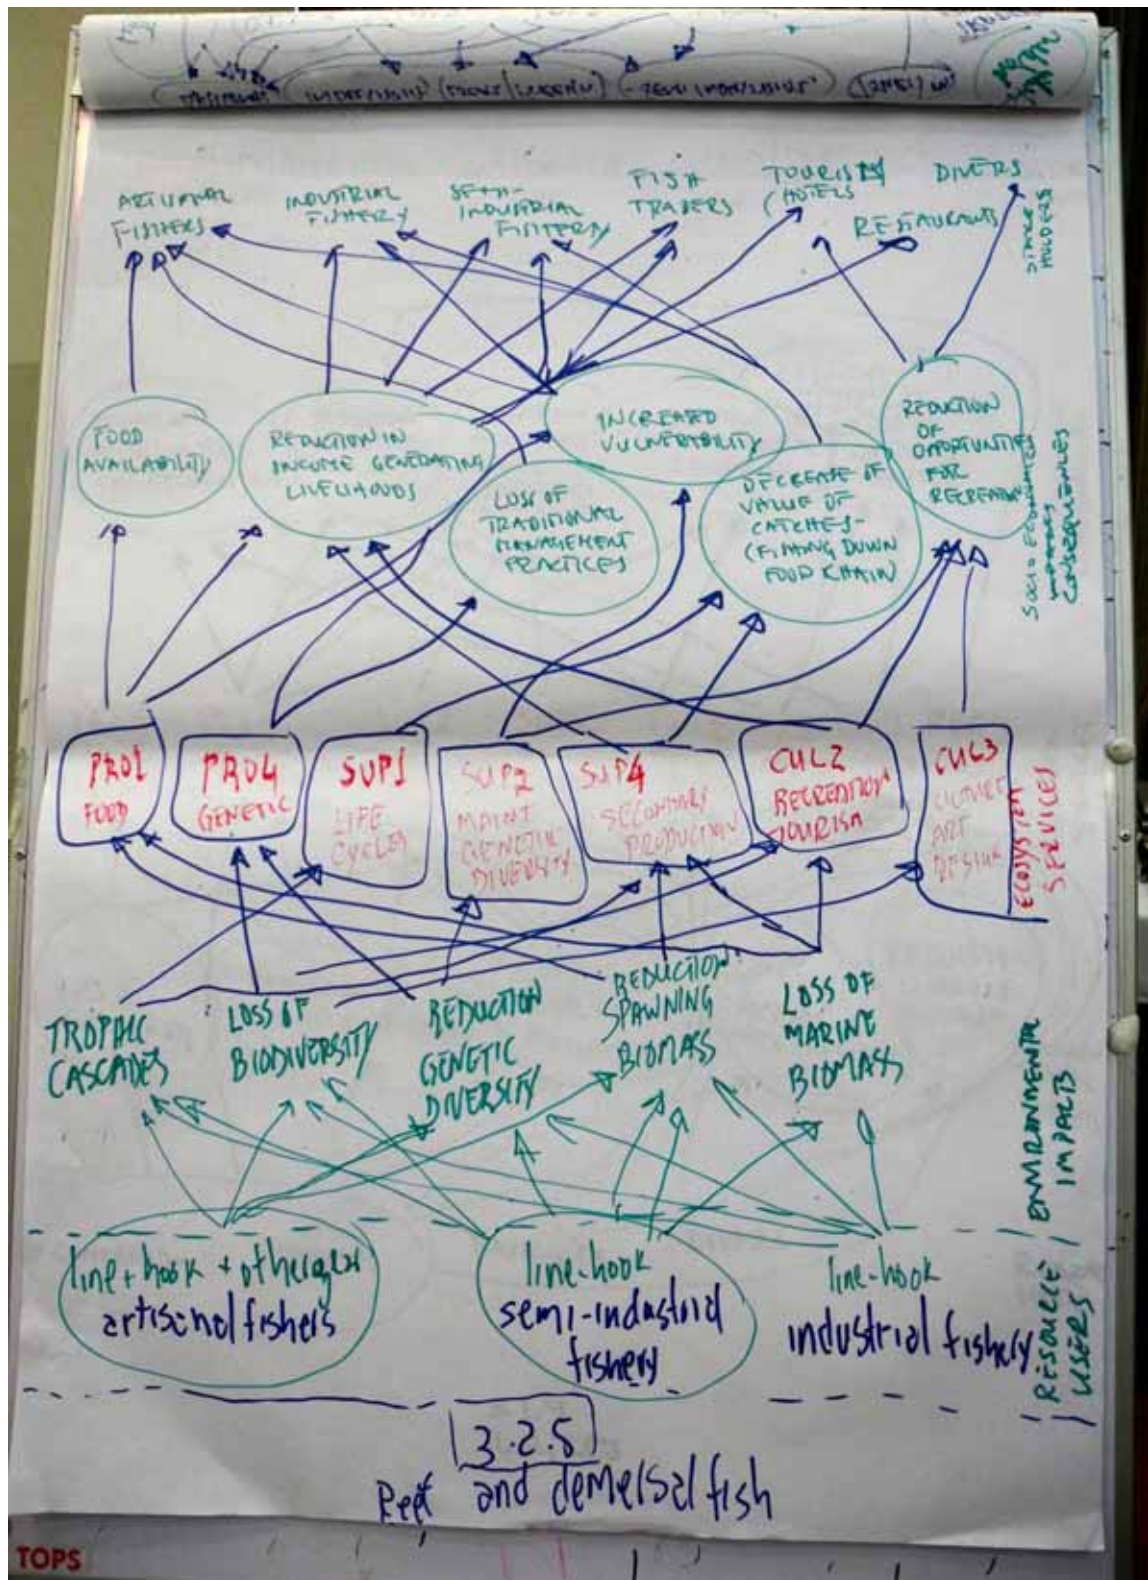 ARTISANAL
FISHERS
INDUSTRIAL
FISHERY
SEMI-
INDUSTRIAL
FISHERY
FISH
TRADERS
TOURISM
(HOTELS
RESTAURANTS
DIVERS
STAKE
HOLDERS
FOOD
AVAILABILITY
REDUCTION IN
INCOME GENERATING
LIVELIHOODS
LOSS OF
TRADITIONAL
MANAGEMENT
PRACTICES
INCREASED
VULNERABILITY
DECREASE OF
VALUE OF
CATCHES-
(FISHING DOWN
FOOD CHAIN)
REDUCTION
OF
OPORTUNITIES
FOR
RECREATION
SOCIO ECONOMIC
CONSEQUENCES
PRO1
FOOD
PRO4
GENETIC
SUP1
LIFE
CYCLES
SUP2
MAINT
GENETIC
DIVERSITY
SUP4
SECONDARY
PRODUCTION
CUL2
RECREATION
TOURISM
CUL3
CULTURE
ART
DESIGN
ECOSYSTEM
SERVICES
TROPHIC
CASCADES
LOSS OF
BIODIVERSITY
REDUCTION
GENETIC
DIVERSITY
REDUCTION
SPAWNING
BIOMASS
LOSS OF
MARINE
BIOMASS
ENVIRONMENTAL
IMPACTS
line + hook + other gear
artisanal fishers
line-hook
semi-industrial
fishery
line-hook
industrial fishery
RESOURCE
USERS
3.2.5
Reef and demersal fish
TOPS